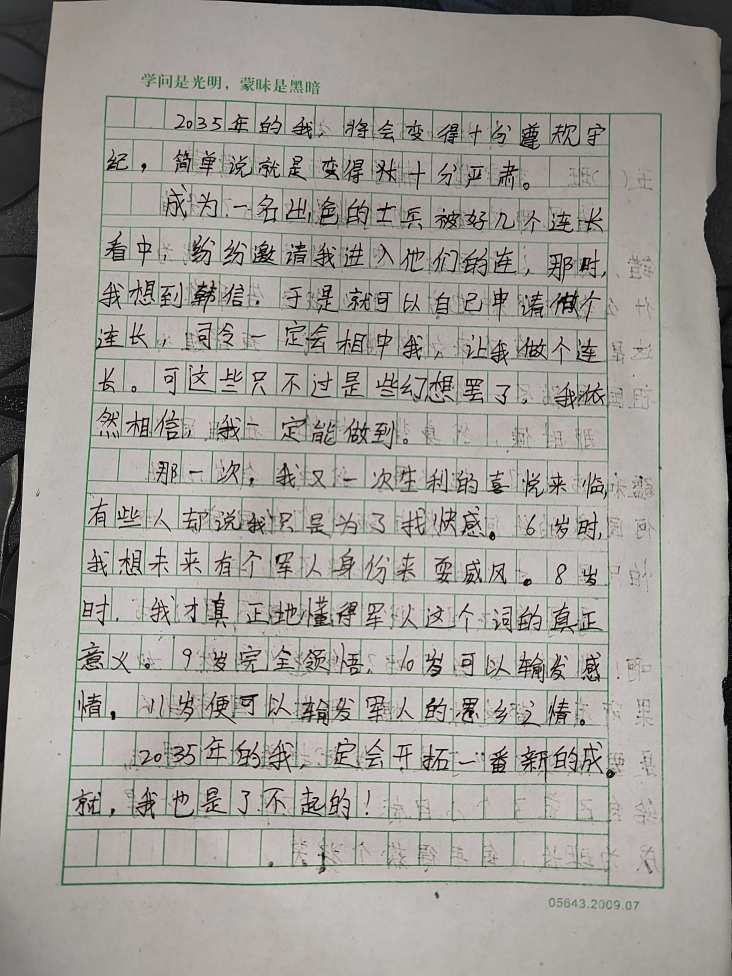 学问是光明，蒙昧是黑暗
2035年的我，将会变得十分遵规守
纪，简单说就是变得十分严肃。
成为一名出色的士兵被好几个连长
看中，纷纷邀请我进入他们的连，那时，
我想到韩信，于是就可以自己申请做个
连长，司令一定会相中我，让我做个连
长。可这些只不过是些幻想罢了，我依
然相信，我一定能做到。
那一次，我又一次生利的喜悦来临，
有些人却说我只是为了找快感。6岁时，
我想未来有个军人身份来耍威风。8岁
时，我才真正地懂得军人这个词的真正
意义。9岁完全领悟，10岁可以输发感
情，11岁便可以输发军人的思乡之情。
2035年的我，定会开拓一番新的成
就，我也是了不起的！
05643.2009.07